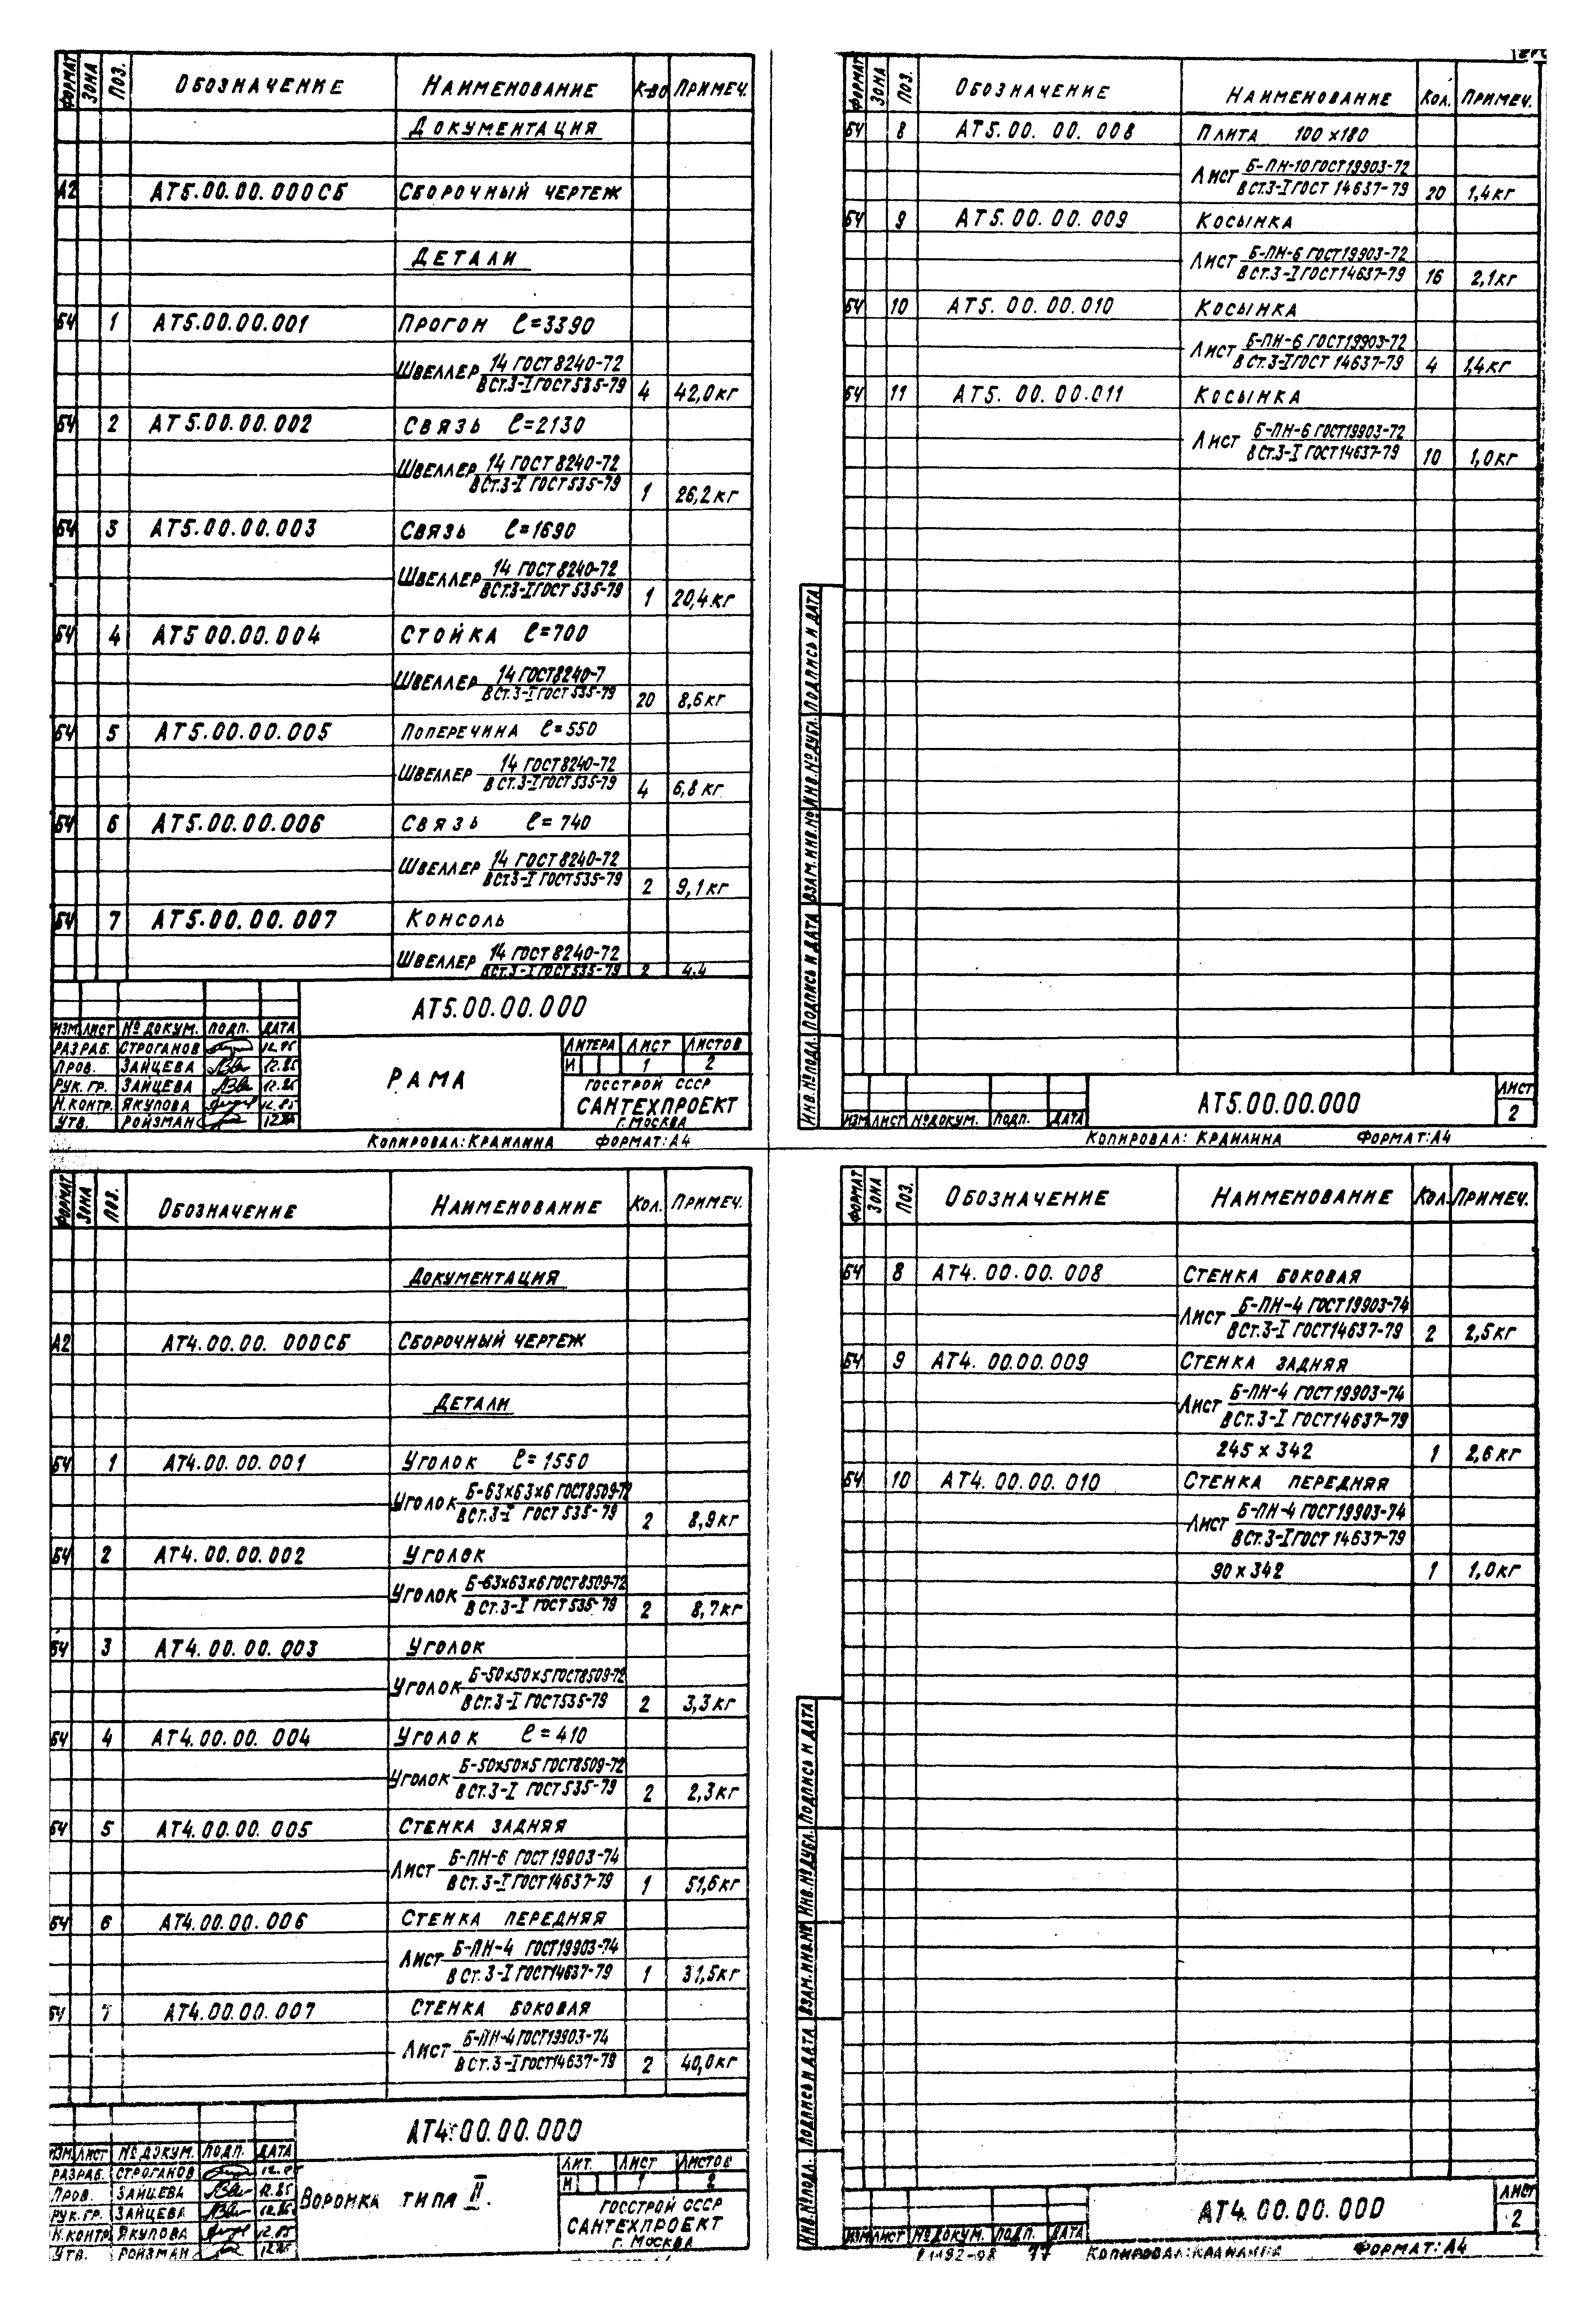 ФОРМАТ ЗОНА ПОЗ. ОБОЗНАЧЕНИЕ НАИМЕНОВАНИЕ К-ВО ПРИМЕЧ.
ДОКУМЕНТАЦИЯ
А2 АТ5.00.00.000СБ СБОРОЧНЫЙ ЧЕРТЕЖ
ДЕТАЛИ
БЧ 1 АТ5.00.00.001 ПРОГОН ℓ=3390
ШВЕЛЛЕР 14 ГОСТ 8240-72
В СТ.3-I ГОСТ 535-79 4 42,0кг
БЧ 2 АТ5.00.00.002 СВЯЗЬ ℓ=2130
ШВЕЛЛЕР 14 ГОСТ 8240-72
В СТ.3-I ГОСТ 535-79 1 26,2кг
БЧ 3 АТ5.00.00.003 СВЯЗЬ ℓ=1690
ШВЕЛЛЕР 14 ГОСТ 8240-72
В СТ.3-I ГОСТ 535-79 1 20,4кг
БЧ 4 АТ5 00.00.004 СТОЙКА ℓ=700
ШВЕЛЛЕР 14 ГОСТ 8240-7
В СТ.3-I ГОСТ 535-79 20 8,6кг
БЧ 5 АТ5.00.00.005 ПОПЕРЕЧИНА ℓ=550
ШВЕЛЛЕР 14 ГОСТ 8240-72
В СТ.3-I ГОСТ 535-79 4 6,8кг
БЧ 6 АТ5.00.00.006 СВЯЗЬ ℓ=740
ШВЕЛЛЕР 14 ГОСТ 8240-72
В СТ.3-I ГОСТ 535-79 2 9,1кг
БЧ 7 АТ5.00.00.007 КОНСОЛЬ
ШВЕЛЛЕР 14 ГОСТ 8240-72
В СТ.3-I ГОСТ 535-79 2 4.4
АТ5.00.00.000
ИЗМ ЛИСТ № ДОКУМ. ПОДП. ДАТА
РАЗРАБ. СТРОГАНОВ 12.85
ПРОВ. ЗАЙЦЕВА 12.85
РУК. ГР. ЗАЙЦЕВА 12.85
Н.КОНТР. ЯКУПОВА 12.85
УТВ. РОЙЗМАН 12.85
РАМА
ЛИТЕРА ЛИСТ ЛИСТОВ
И 1 2
ГОССТРОЙ СССР
САНТЕХПРОЕКТ
Г. МОСКВА
КОПИРОВАЛ: КРАИЛИНА ФОРМАТ: А4
ФОРМАТ ЗОНА ПОЗ. ОБОЗНАЧЕНИЕ НАИМЕНОВАНИЕ КОЛ. ПРИМЕЧ.
БЧ 8 АТ5.00.00.008 ПЛИТА 100×180
ЛИСТ Б-ПН-10 ГОСТ 19903-72
В СТ.3-I ГОСТ 14637-79 20 1,4кг
БЧ 9 АТ5.00.00.009 КОСЫНКА
ЛИСТ Б-ПН-6 ГОСТ 19903-72
В СТ.3-I ГОСТ 14637-79 16 2,1кг
БЧ 10 АТ5.00.00.010 КОСЫНКА
ЛИСТ Б-ПН-6 ГОСТ 19903-72
В СТ.3-I ГОСТ 14637-79 4 1,4кг
БЧ 11 АТ5.00.00.011 КОСЫНКА
ЛИСТ Б-ПН-6 ГОСТ 19903-72
В СТ.3-I ГОСТ 14637-79 10 1,0кг
ИНВ.№ ПОДЛ. ПОДПИСЬ И ДАТА ВЗАМ.ИНВ.№ ИНВ.№ ДУБЛ. ПОДПИСЬ И ДАТА
ИЗМ ЛИСТ № ДОКУМ. ПОДП. ДАТА
АТ5.00.00.000
ЛИСТ
2
КОПИРОВАЛ: КРАИЛИНА ФОРМАТ: А4
ФОРМАТ ЗОНА ПОЗ. ОБОЗНАЧЕНИЕ НАИМЕНОВАНИЕ КОЛ. ПРИМЕЧ.
ДОКУМЕНТАЦИЯ
А2 АТ4.00.00.000СБ СБОРОЧНЫЙ ЧЕРТЕЖ
ДЕТАЛИ
БЧ 1 АТ4.00.00.001 УГОЛОК ℓ=1550
УГОЛОК Б-63×63×6 ГОСТ 8509-72
В СТ.3-I ГОСТ 535-79 2 8,9кг
БЧ 2 АТ4.00.00.002 УГОЛОК
УГОЛОК Б-63×63×6 ГОСТ 8509-72
В СТ.3-I ГОСТ 535-79 2 8,7кг
БЧ 3 АТ4.00.00.003 УГОЛОК
УГОЛОК Б-50×50×5 ГОСТ 8509-72
В СТ.3-I ГОСТ 535-79 2 3,3кг
БЧ 4 АТ4.00.00.004 УГОЛОК ℓ=410
УГОЛОК Б-50×50×5 ГОСТ 8509-72
В СТ.3-I ГОСТ 535-79 2 2,3кг
БЧ 5 АТ4.00.00.005 СТЕНКА ЗАДНЯЯ
ЛИСТ Б-ПН-6 ГОСТ 19903-74
В СТ.3-I ГОСТ 14637-79 1 51,6кг
БЧ 6 АТ4.00.00.006 СТЕНКА ПЕРЕДНЯЯ
ЛИСТ Б-ПН-4 ГОСТ 19903-74
В СТ.3-I ГОСТ 14637-79 1 31,5кг
БЧ 7 АТ4.00.00.007 СТЕНКА БОКОВАЯ
ЛИСТ Б-ПН-4 ГОСТ 19903-74
В СТ.3-I ГОСТ 14637-79 2 40,0кг
АТ4.00.00.000
ИЗМ ЛИСТ № ДОКУМ. ПОДП. ДАТА
РАЗРАБ. СТРОГАНОВ 12.85
ПРОВ. ЗАЙЦЕВА 12.85
РУК. ГР. ЗАЙЦЕВА 12.85
Н.КОНТР. ЯКУПОВА 12.85
УТВ. РОЙЗМАН 12.85
ВОРОНКА ТИПА II.
ЛИТ. ЛИСТ ЛИСТОВ
И 1 2
ГОССТРОЙ СССР
САНТЕХПРОЕКТ
Г. МОСКВА
ФОРМАТ ЗОНА ПОЗ. ОБОЗНАЧЕНИЕ НАИМЕНОВАНИЕ КОЛ. ПРИМЕЧ.
БЧ 8 АТ4.00.00.008 СТЕНКА БОКОВАЯ
ЛИСТ Б-ПН-4 ГОСТ 19903-74
В СТ.3-I ГОСТ 14637-79 2 2,5кг
БЧ 9 АТ4.00.00.009 СТЕНКА ЗАДНЯЯ
ЛИСТ Б-ПН-4 ГОСТ 19903-74
В СТ.3-I ГОСТ 14637-79
245×342 1 2,6кг
БЧ 10 АТ4.00.00.010 СТЕНКА ПЕРЕДНЯЯ
ЛИСТ Б-ПН-4 ГОСТ 19903-74
В СТ.3-I ГОСТ 14637-79
90×342 1 1,0кг
ИНВ.№ ПОДЛ. ПОДПИСЬ И ДАТА ВЗАМ.ИНВ.№ ИНВ.№ ДУБЛ. ПОДПИСЬ И ДАТА
ИЗМ ЛИСТ № ДОКУМ. ПОДП. ДАТА
АТ4.00.00.000
ЛИСТ
2
КОПИРОВАЛ: КРАИЛИНА ФОРМАТ: А4